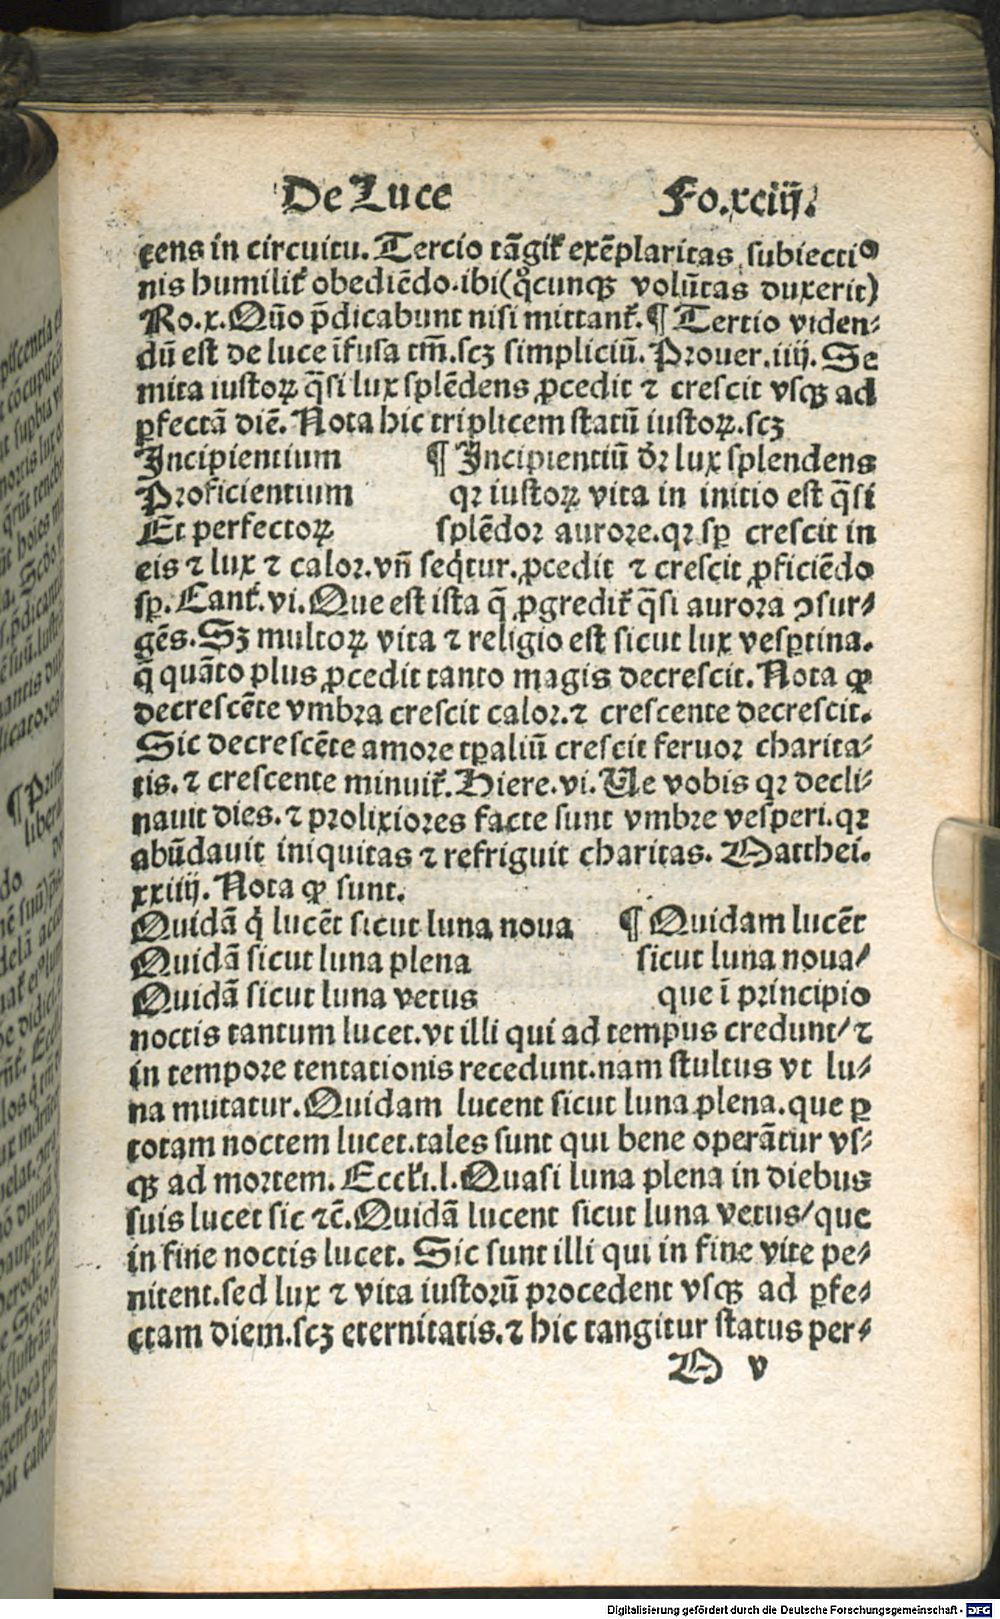 De Luce Fo.xciij.
cens in circuitu. Tercio tãgit᷑ exẽplaritas subiectiꝰ
nis humilit᷑ obediẽdo.ibi(qͦcunqꝫ volũtas duxerit)
Ro.x.Qũo p̄dicabunt nisi mittant᷑.¶ Tertio viden⸗
dũ est de luce ĩfusa tm̃.scꝫ simpliciũ.Prouer.iiij. Se
mita iustoꝝ q̃si lux splẽdens ꝓcedit ⁊ crescit vsqꝫ ad
ꝑfectã diẽ. Nota hic triplicem statũ iustoꝝ.scꝫ
Incipientium ¶ Incipientiũ dr̃ lux splendens
Proficientium qꝛ iustoꝝ vita in initio est q̃si
Et perfectoꝝ splẽdoꝛ auroꝛe.qꝛ sꝑ crescit in
eis ⁊ lux ⁊ caloꝛ.vñ seq̇tur.ꝓcedit ⁊ crescit ꝓficiẽdo
sꝑ.Cant᷑.vi.Que est ista q̃ ꝓgredit᷑ q̃si aurora ꝯsur⸗
gẽs.Sꝫ multoꝝ vita ⁊ religio est sicut lux vesꝑtina.
q̃ quãto plus ꝓcedit tanto magis decrescit. Nota ꝙ
decrescẽte vmbꝛa crescit caloꝛ.⁊ crescente decrescit.
Sic decrescẽte amore tꝑaliũ crescit feruoꝛ charita⸗
tis.⁊ crescente minuit᷑.Hiere.vi.Ue vobis qꝛ decli⸗
nauit dies.⁊ prolixioꝛes facte sunt vmbꝛe vesperi.qꝛ
abũdauit iniquitas ⁊ refriguit charitas. Matthei.
xxiiij. Nota ꝙ sunt.
Quidã q̇ lucẽt sicut luna noua ¶ Quidam lucẽt
Quidã sicut luna plena sicut luna noua/
Quidã sicut luna vetus que ĩ pꝛincipio
noctis tantum lucet.vt illi qui ad tempus credunt/⁊
in tempoꝛe tentationis recedunt.nam stultus vt lu⸗
na mutatur.Quidam lucent sicut luna plena.que ꝑ
totam noctem lucet.tales sunt qui bene operãtur vs⸗
qꝫ ad moꝛtem. Eccłi.l.Quasi luna plena in diebus
suis lucet sic ⁊c̃.Quidã lucent sicut luna vetus/que
in fine noctis lucet. Sic sunt illi qui in fine vite pe⸗
nitent.sed lux ⁊ vita iustoꝛũ pꝛocedent vsqꝫ ad ꝑfe⸗
ctam diem.scꝫ eternitatis.⁊ hic tangitur status per⸗
M v
Digitalisierung gefördert durch die Deutsche Forschungsgemeinschaft - DFG